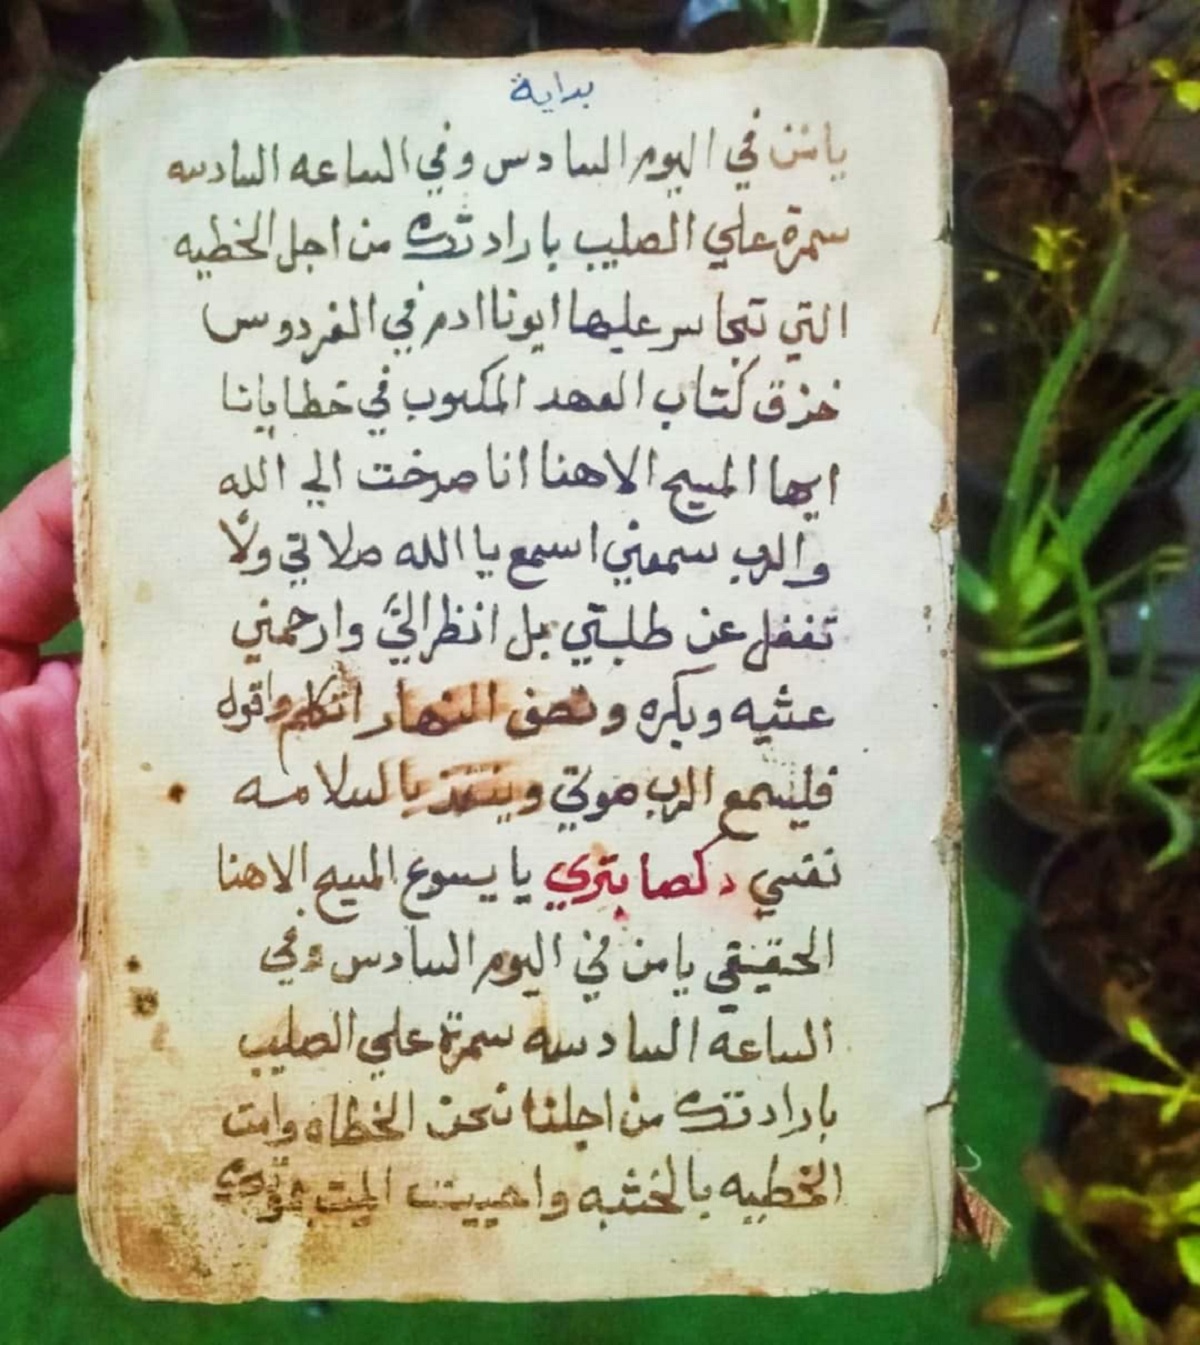 بداية
يامن في اليوم السادس وفي الساعه السادسه
سمرة علي الصليب بارادتك من اجل الخطيه
التي تجاسر عليها ابونا ادم في الفردوس
خزق كتاب العهد المكتوب في خطايانا
ايها المسيح الاهنا انا صرخت الي الله
والرب سمعني اسمع يا الله صلاتي ولا
تغفل عن طلبتي بل انظر اليَّ وارحمني
عشيه وبكره ونصف النهار اتكلم واقول
فليسمع الرب صوتي وينقذ بالسلامه
نفسي دكصابتري يا يسوع المسيح الاهنا
الحقيقي يامن في اليوم السادس وفي
الساعة السادسه سمرة علي الصليب
بارادتك من اجلنا نحن الخطاه وامت
الخطيه بالخشبه واحييت الميت بموتك